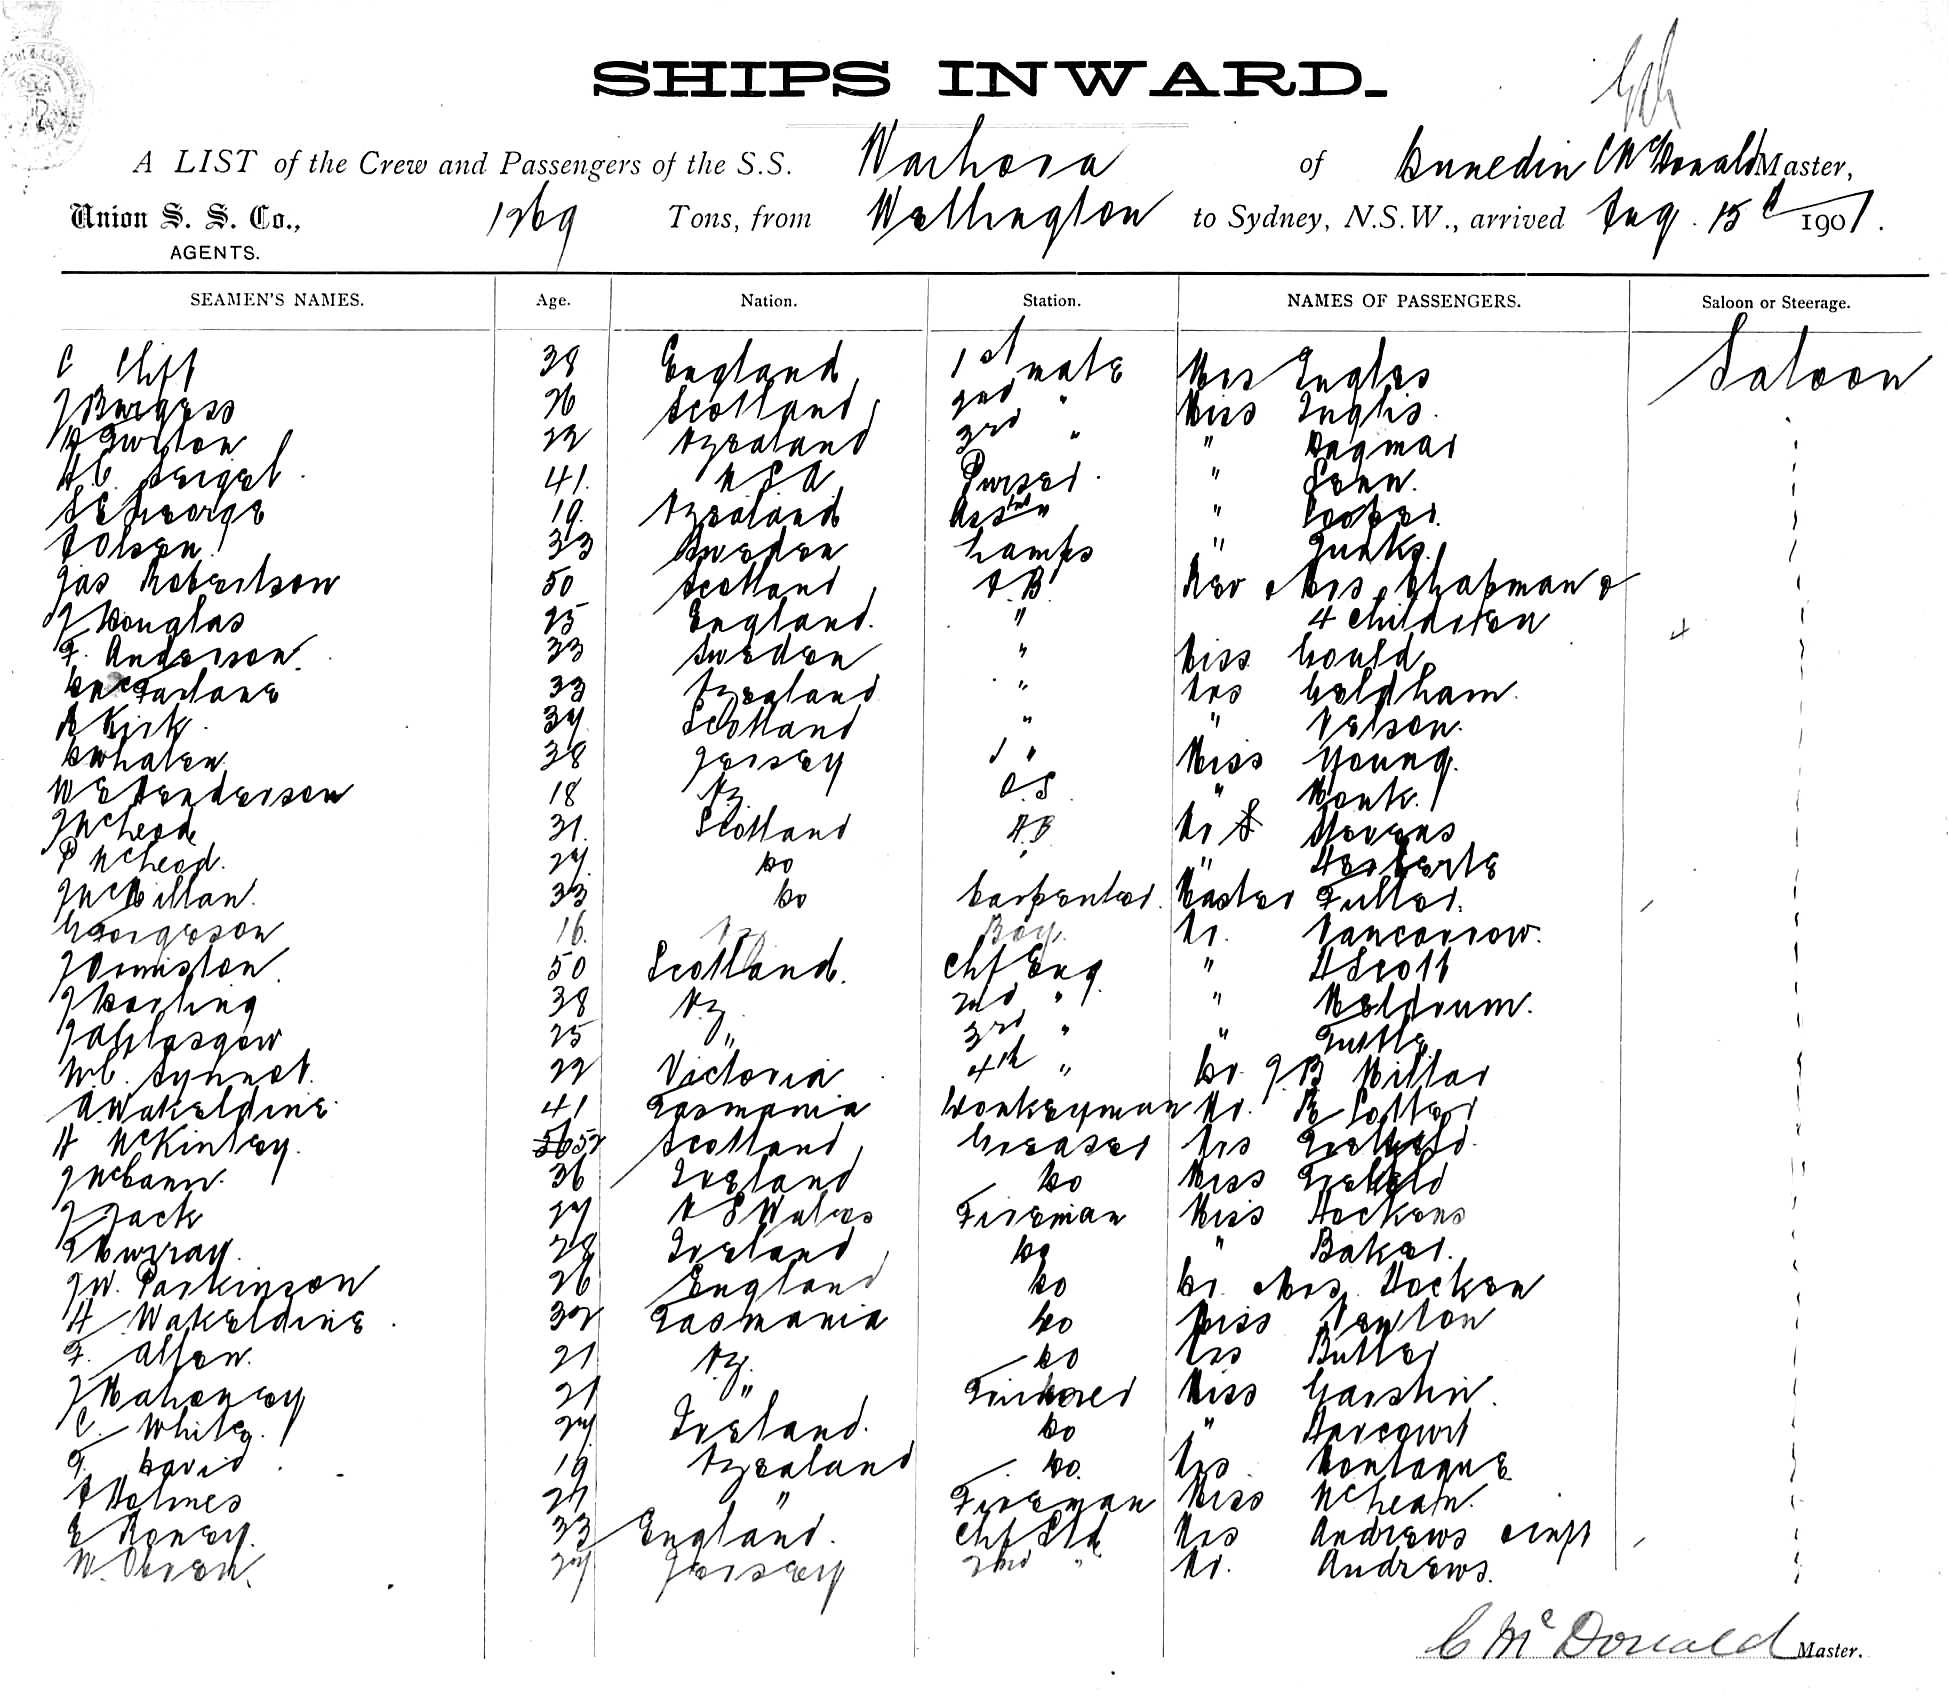 SHIPS INWARD.
A LIST of the Crew and Passengers of the S.S. of Dunedin C McDonald Master,
Union S. S. Co., 1269 Tons, from Wellington to Sydney, N.S.W., arrived Aug. 15th 1901.
AGENTS.
SEAMEN'S NAMES. Age. Nation. Station. NAMES OF PASSENGERS. Saloon or Steerage.
C Clift 38 England 1st mate Mrs Inglis Saloon
J Burgess 26 Scotland 2nd " Miss Inglis.
22 NZealand 3rd " " Dagmar
H.C. Seigel 41. U S A Purser. " Senn.
S E George 19. NZealand Asstnt " " Cooper.
A Olsen 33 Sweden Lamps " Junks.
Jas Robertson 50 Scotland A.B. Rev & Mrs Chapman &
J Douglas 25 England. " 4 Children
F. Anderson. 33 Sweden " Miss Gould
D McFarlane 33 NZealand " Mrs Geldham.
A Kirk. 34 Scotland " " Nelson.
D Whalen 38 Jersey " Miss Young.
W E Henderson 18 NZ. O.S. " Monk.
J McLeod 31. Scotland A.B. Mr Stevens
P McLeod. 24. Do "
J McMillan. 33 Do Carpenter. Master Fuller.
G Forgeson 16. NZ. Boy. Mr. Vancorrow.
J Ormiston. 50 Scotland. Chf Eng " H Scott
J Darling 38 NZ. 2nd " " Meldrum.
J A Glasgow 25 " 3rd " "
W.C. Synnot. 22 Victoria 4th " Dr. J B Millar
A Wakeldine. 41 Tasmania Donkeyman Mr. R Potter
H McKinley. 52 Scotland Greaser Mrs
J McCann. 36 Ireland Do Miss
J Jack 24 N S Wales Fireman Miss Hockens
T Murray. 28 Ireland Do " Baker.
J W. Parkinson 26 England Do Dr. & Mrs. Hocken
H Wakeldine 32 Tasmania Do Miss Newton
F. Allen. 21 NZ. Do Mrs Butler
J Mahoney 21 " Trimmer Miss Garstin.
C. White. 24 Ireland. Do " Harcourt
T. David 19 NZealand Do. Mrs Montague
A Holmes 24 " Fireman Miss McLean.
E Roney. 33 England. Chf Std Mrs Andrews & inft
W. Oren. 24 Jersey 2nd " Mr. Andrews.
C McDonald Master.